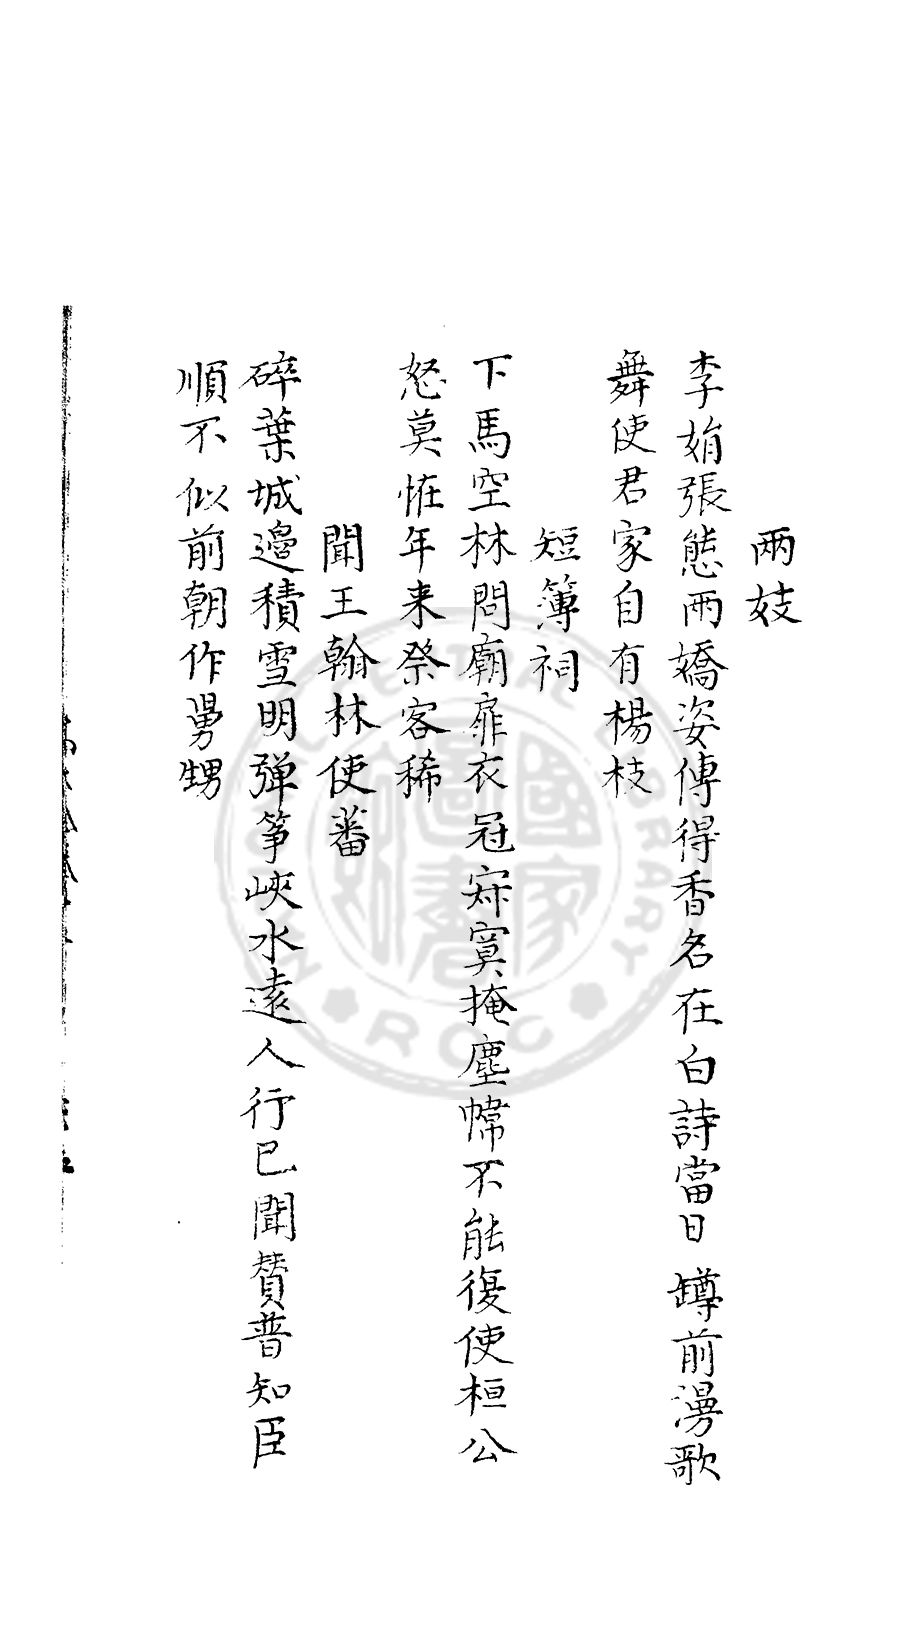 兩妓
李娟張態兩嬌姿傳得香名在白詩當日罇前漫歌
舞使君家自有楊枝
短簿祠
下馬空林問廟扉衣冠寂寞掩塵幃不能復使桓公
怒莫恠年来祭客稀
聞王翰林使蕃
碎葉城邊積雪明弹筝峽水遠人行已聞賛普知臣
順不似前朝作舅甥
NATIONAL CENTRAL LIBRARY
R.O.C.
國家圖書